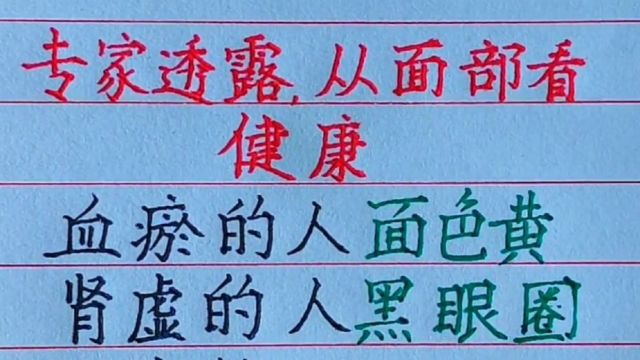 专家透露,从面部看
健康
血瘀的人面色黄
肾虚的人黑眼圈